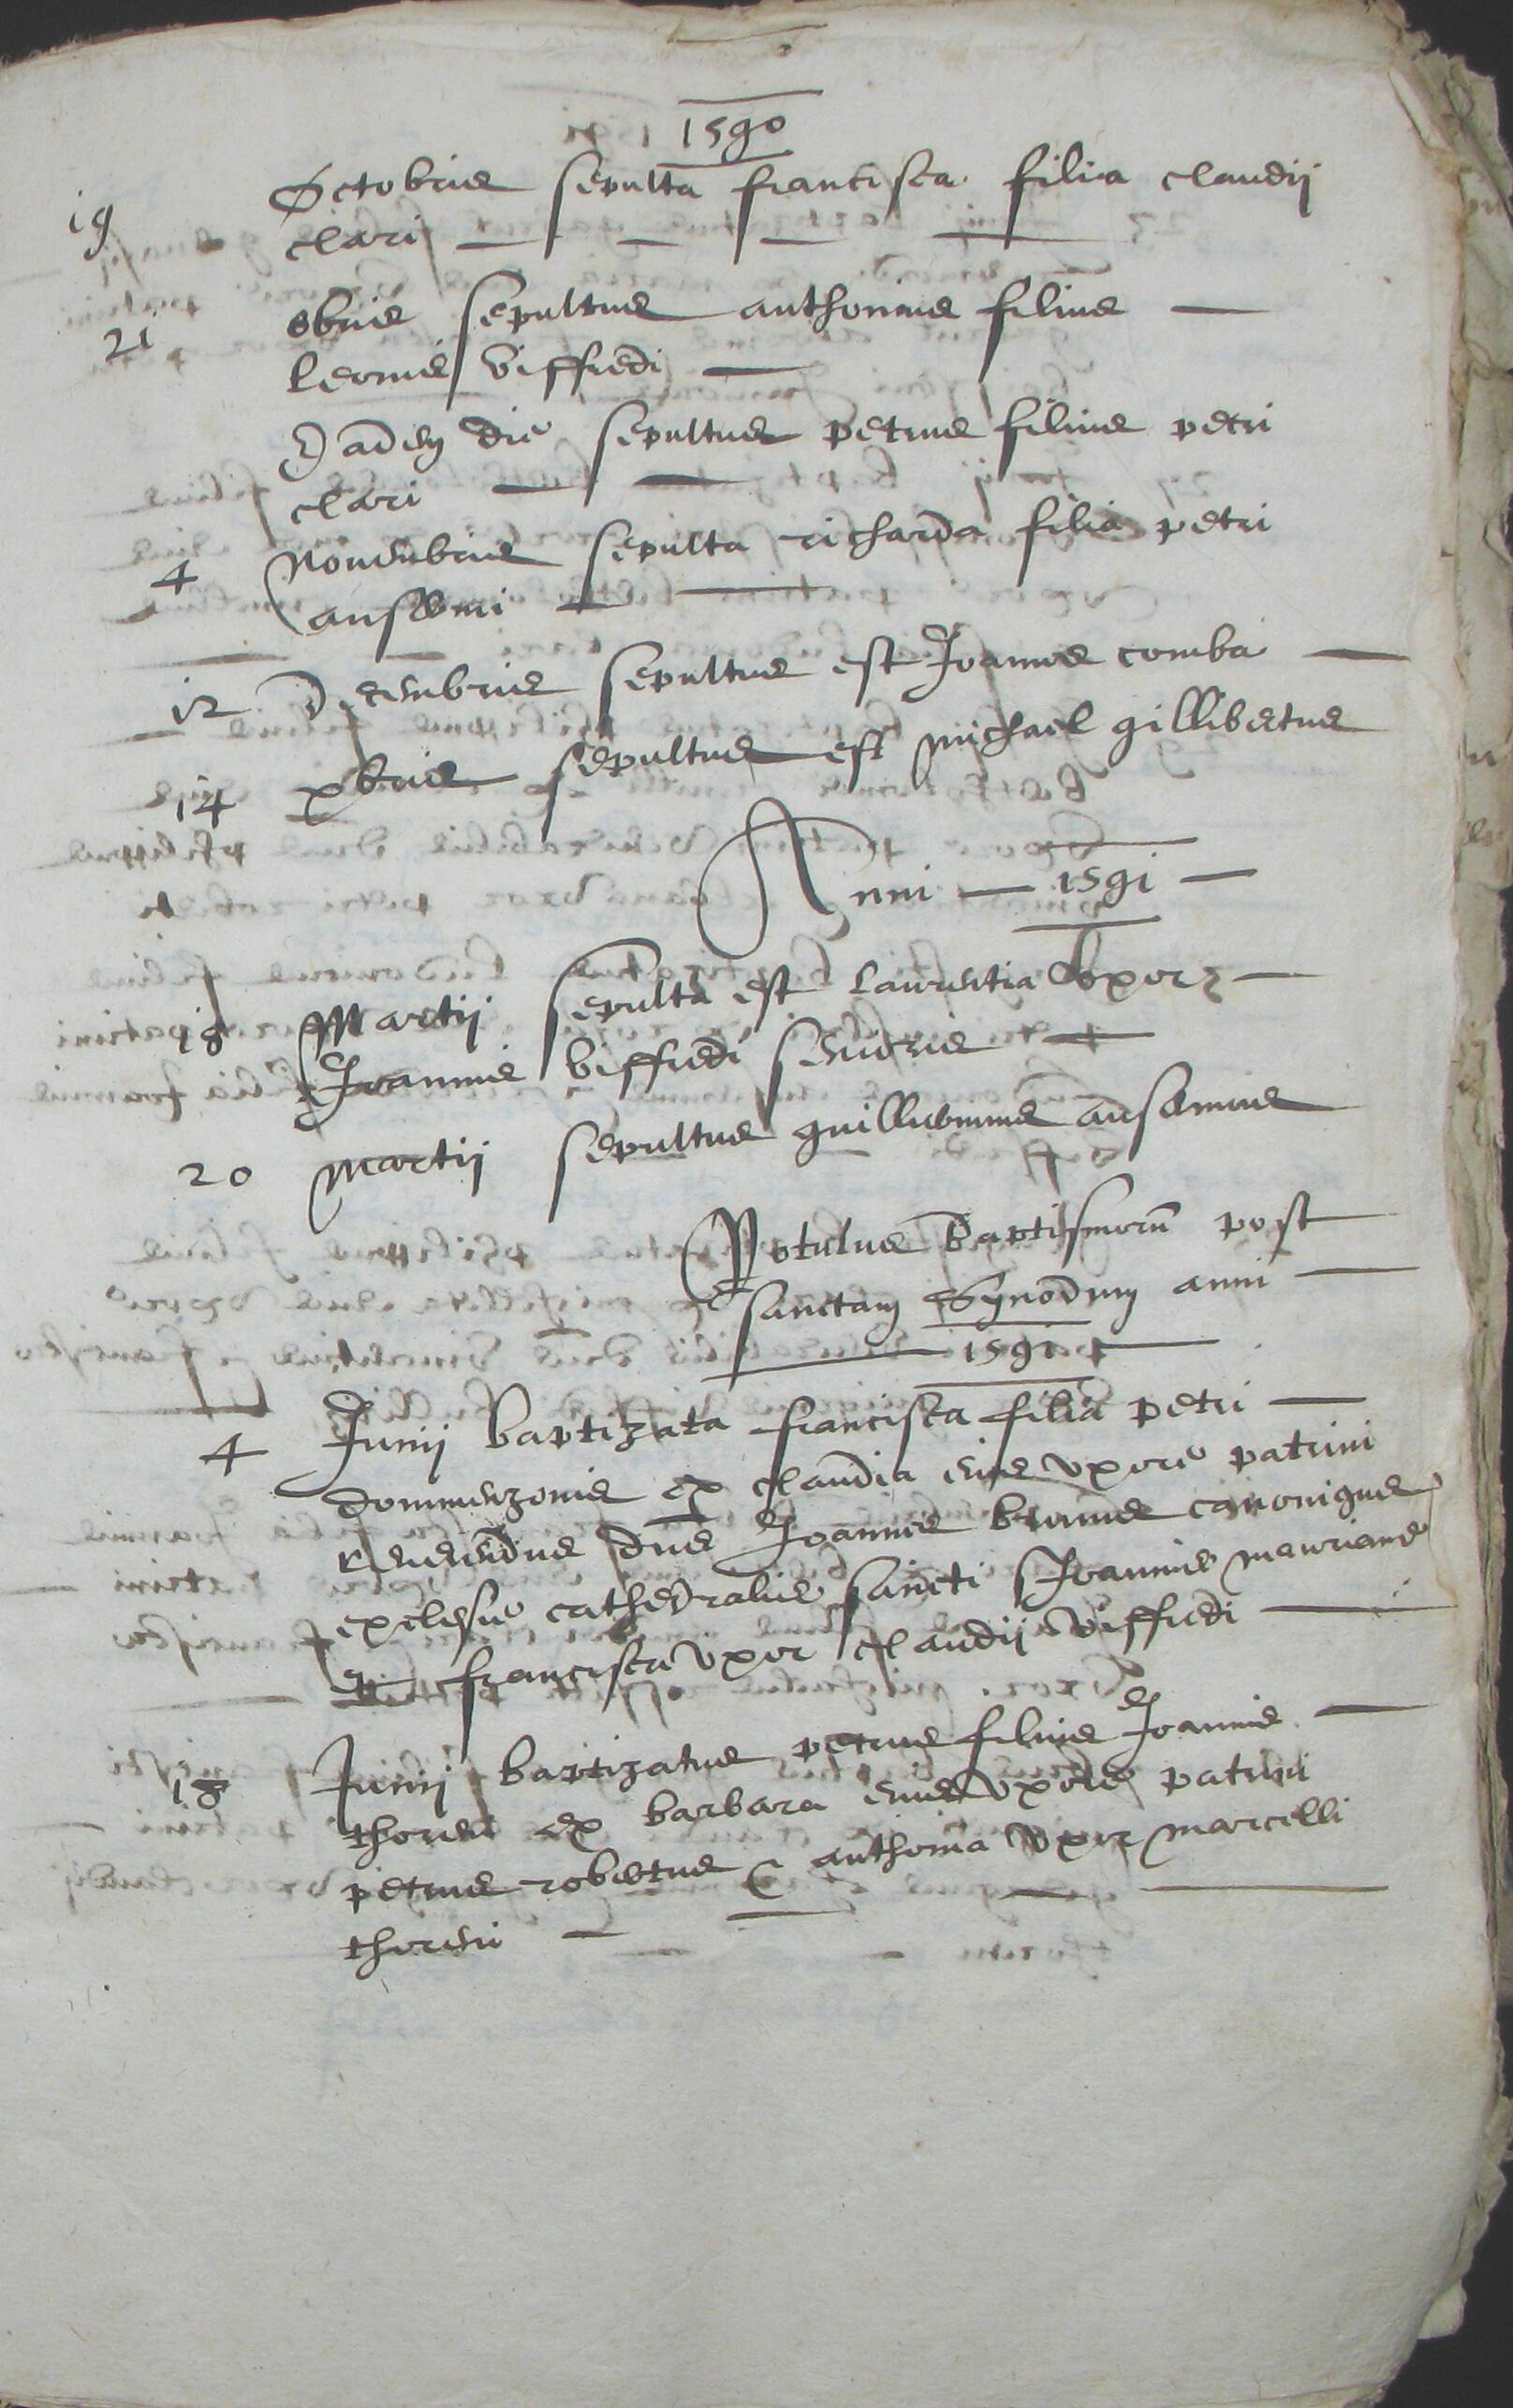 1590
19 Octobris sepulta francisca filia claudij
clari
21 8bris sepultus anthonius filius
leonis viffredi
Eadem die sepultus petrus filius petri
clari
4 Novembris sepulta richarda filia petri
anselmi
12 Decembris sepultus est Joannes comba
14 xbris sepultus est michael gillibertus
Anni 1591
18 Martij sepulta est laurentia uxor
Joannis viffredi senioris
20 Martij sepultus guilliermus anselmus
Rotulus baptismorū post
sanctam Synodum anni
1591
4 Junij baptizata francisca filia petri
dommenzonis ex claudia eius uxore patrini
reverendus dns Joannes brunus canonigus
exclesie cathedralis sancti Joannis mauriane
et francisca uxor claudij viffredi
18 Junij baptizatus petrus filius Joannis
thoresii ex barbara eius uxore patrini
petrus robertus et anthonia uxor marcelli
thoresii